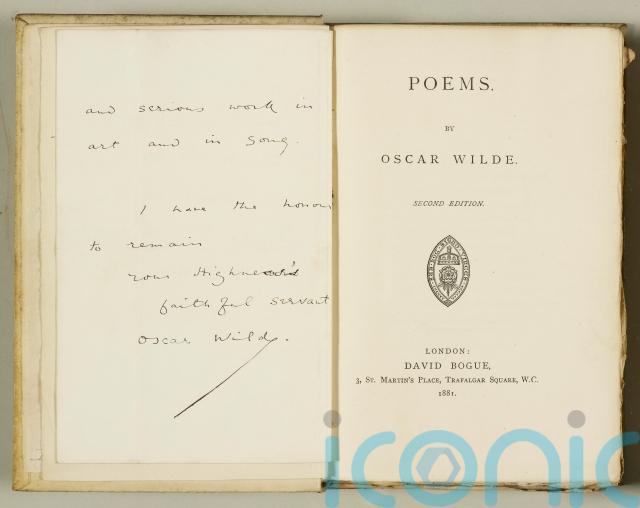 and serious work in
art and in song.
I have the honour
to remain
your Highness's
faithful servant
Oscar Wilde.
POEMS.
BY
OSCAR WILDE.
SECOND EDITION.
LONDON:
DAVID BOGUE,
3, ST. MARTIN'S PLACE, TRAFALGAR SQUARE, W.C.
1881.
iconic